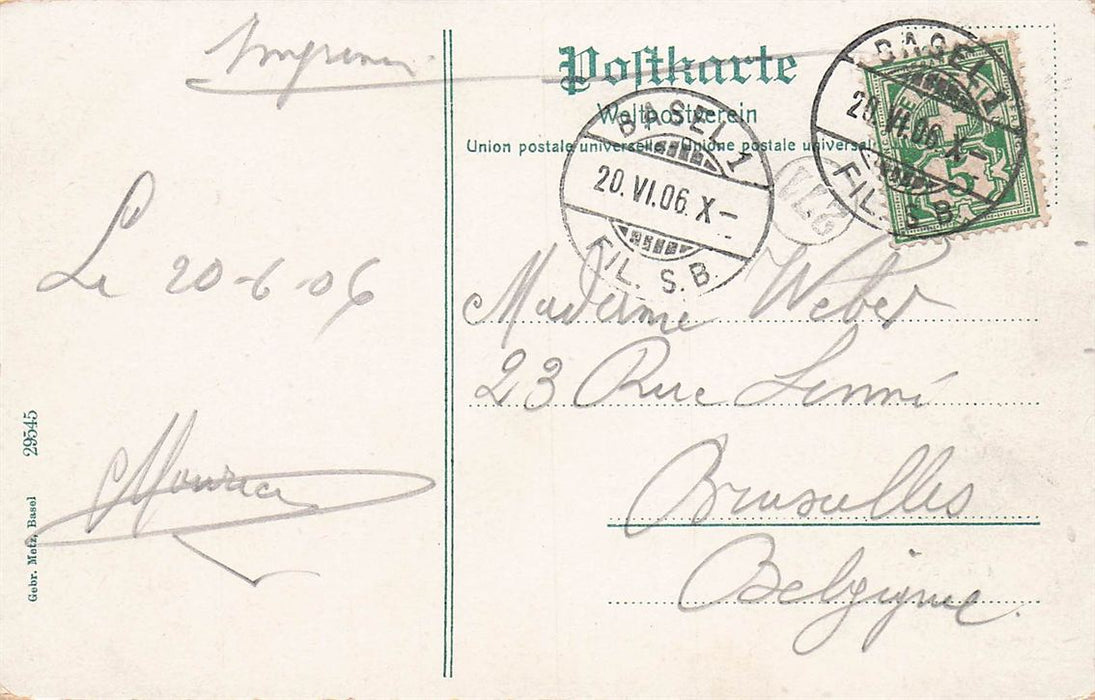 Imprimé
Postkarte
Weltpostverein
Union postale universelle. Unione postale universale
BASEL 1
20.VI.06.X-
FIL. S.B.
BASEL 1
20.VI.06.X-
FIL. S.B.
5
Le 20-6-06
Maurice
Madame Weber
23 Rue Linné
Bruxelles
Belgique.
Gebr. Metz, Basel 29545